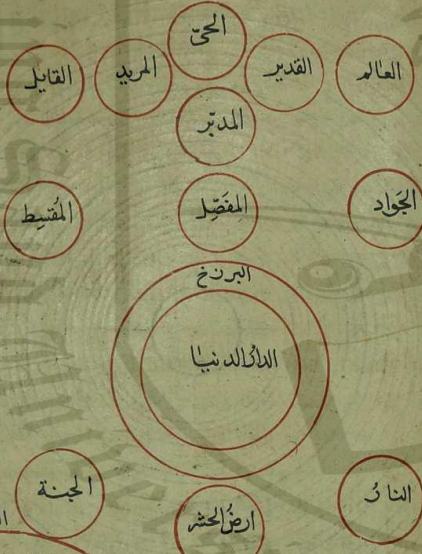 الحيّ
العالم القدير المريد القايل
المدبّر
الجَواد المفَصِّل المُقسِط
البرزخ
الدارُالدنيا
النارُ ارضُالحشر الجنة